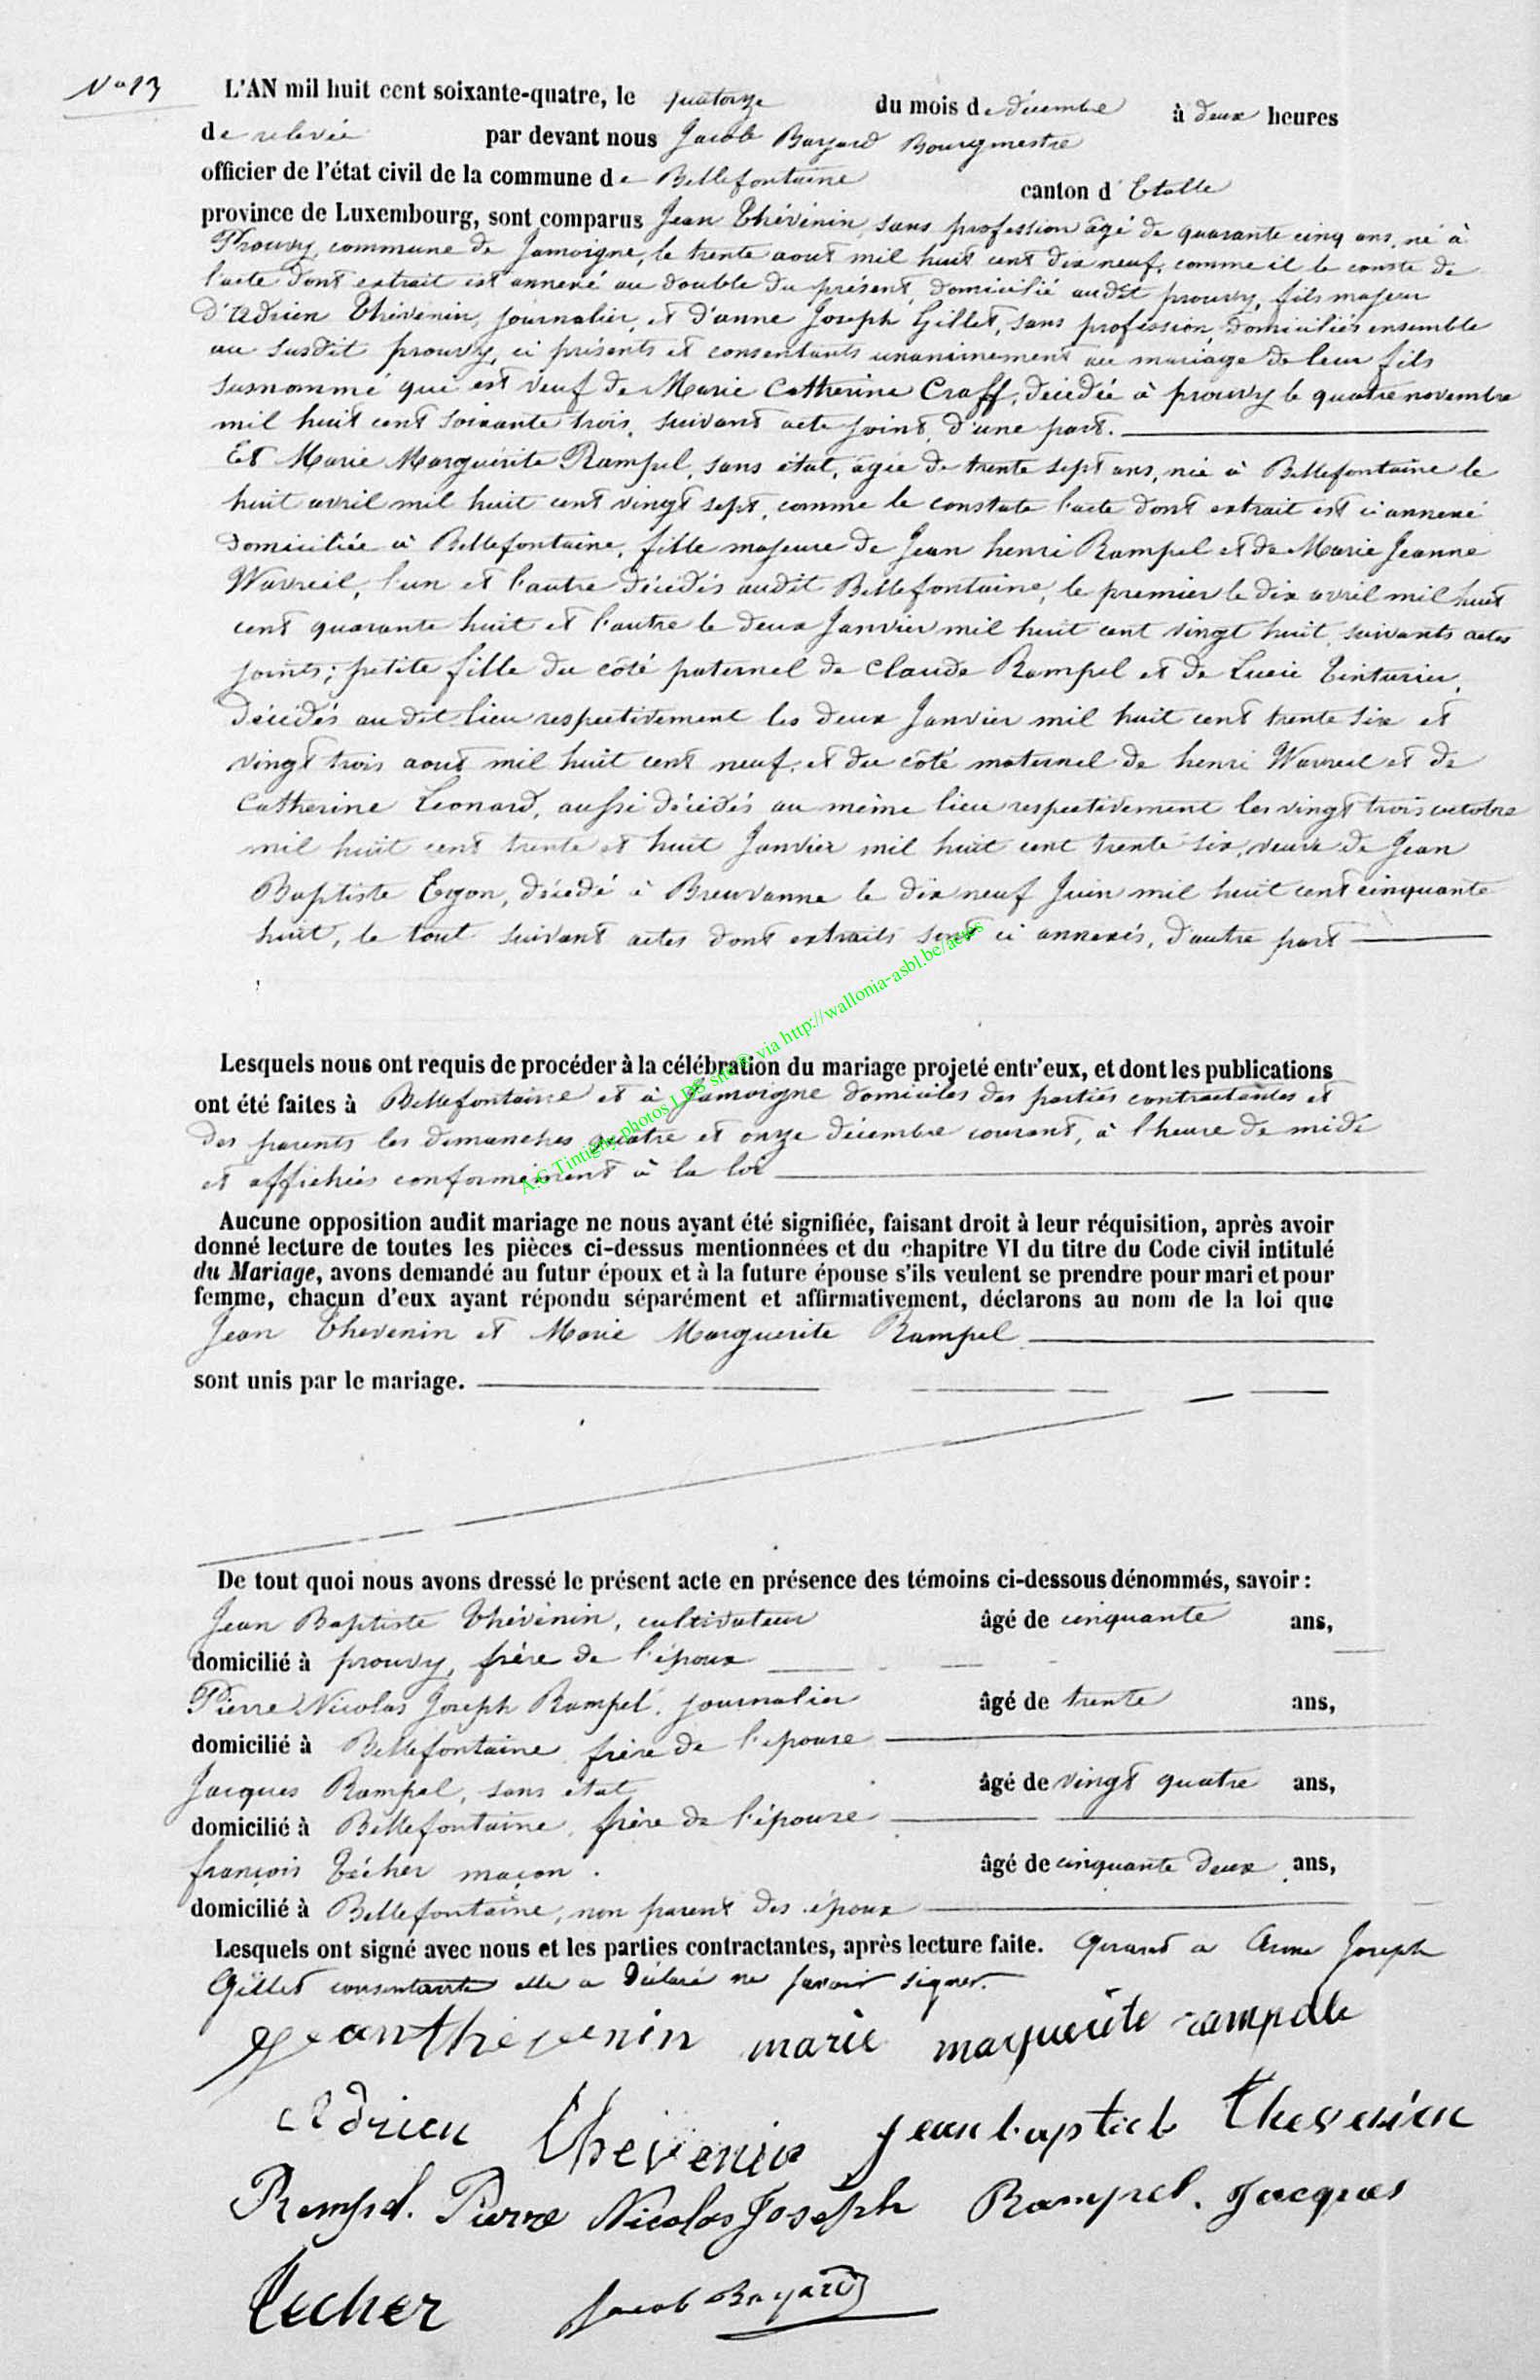 No 13
L'AN mil huit cent soixante-quatre, le quatorze du mois de décembre à deux heures
de relevée par devant nous Jacob Bayard Bourgmestre
officier de l'état civil de la commune de Bellefontaine canton d'Etalle
province de Luxembourg, sont comparus Jean Thévènin, sans profession âgé de quarante cinq ans, né à
Prouvy, commune de Jamoigne, le trente aout mil huit cent dix neuf, comme il le conste de
l'acte dont extrait est annexé au double du présent, domicilié audit prouvy, fils majeur
d'Adrien Thévènin, journalier, et d'anne Joseph Gillet, sans profession, domiciliés ensemble
au susdit prouvy, ci présents et consentants unanimement au mariage de leur fils
susnommé qui est veuf de Marie Catherine Craff, décédée à prouvy le quatre novembre
mil huit cent soixante trois, suivant acte joint, d'une part.
Et Marie Marguérite Rampel, sans état, âgée de trente sept ans, née à Bellefontaine le
huit avril mil huit cent vingt sept, comme le constate l'acte dont extrait est ci annexé
domiciliée à Bellefontaine, fille majeure de Jean henri Rampel et de Marie Jeanne
Wavreil, l'un et l'autre décédés audit Bellefontaine, le premier le dix avril mil huit
cent quarante huit et l'autre le deux Janvier mil huit cent vingt huit, suivants actes
joints; petite fille du côté paternel de Claude Rampel et de Lucie Tinturier,
décédés au dit lieu respectivement les deux Janvier mil huit cent trente six et
vingt trois aout mil huit cent neuf, et du côté maternel de henri Wavreil et de
Catherine Leonard, aussi décédés au même lieu respectivement les vingt trois octobre
mil huit cent trente et huit Janvier mil huit cent trente six, veuve de Jean
Baptiste Egon, décédé à Breuvanne le dix neuf Juin mil huit cent cinquante
huit, le tout suivant actes dont extraits sont ci annexés, d'autre part
A.G.Tintigny photos LDS sur via http://wallonia-asbl.be/actes
Lesquels nous ont requis de procéder à la célébration du mariage projeté entr'eux, et dont les publications
ont été faites à Bellefontaine et à Jamoigne domiciles des parties contractantes et
des parents les dimanches quatre et onze décembre courant, à l'heure de midi
et affichées conformément à la loi
Aucune opposition audit mariage ne nous ayant été signifiée, faisant droit à leur réquisition, après avoir
donné lecture de toutes les pièces ci-dessus mentionnées et du chapitre VI du titre du Code civil intitulé
du Mariage, avons demandé au futur époux et à la future épouse s'ils veulent se prendre pour mari et pour
femme, chacun d'eux ayant répondu séparément et affirmativement, déclarons au nom de la loi que
Jean Thevenin et Marie Marguerite Rampel
sont unis par le mariage.
De tout quoi nous avons dressé le présent acte en présence des témoins ci-dessous dénommés, savoir :
Jean Baptiste Thévènin, cultivateur âgé de cinquante ans,
domicilié à prouvy, frère de l'époux
Pierre Nicolas Joseph Rampel, journalier âgé de trente ans,
domicilié à Bellefontaine frère de l'épouse
Jacques Rampel, sans état âgé de vingt quatre ans,
domicilié à Bellefontaine, frère de l'épouse
françois Técher maçon. âgé de cinquante deux ans,
domicilié à Bellefontaine, non parent des époux
Lesquels ont signé avec nous et les parties contractantes, après lecture faite. Quand à Anne Joseph
Gillet consentante elle a déclaré ne savoir signer.
Jean thevenin marie marguerite rampelle
Adrien Thevenin jean baptiste Thevenin
Rampel. Pierre Nicolas Joseph Rampel. Jacques
Técher Jacob Bayard